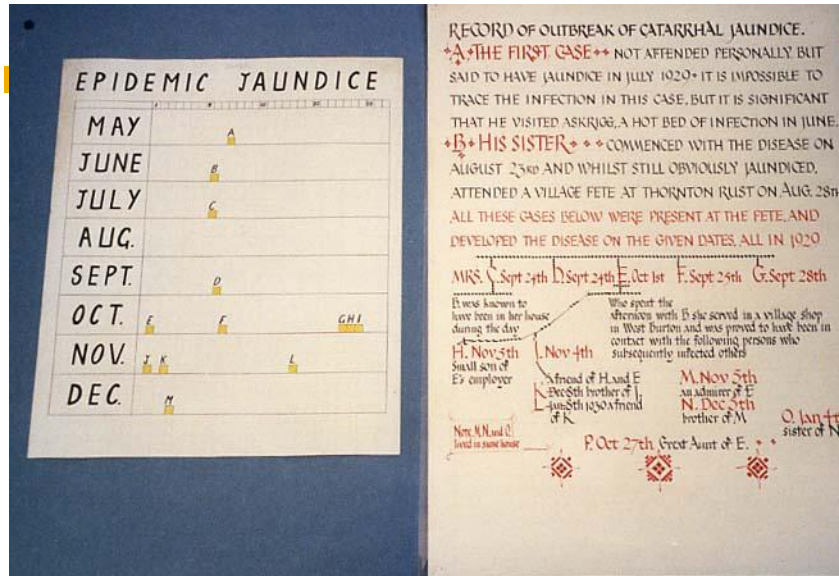 EPIDEMIC JAUNDICE
MAY
A
JUNE
B
JULY
C
AUG.
SEPT.
D
OCT.
E F G H I
NOV.
J K L
DEC.
M
RECORD OF OUTBREAK OF CATARRHAL JAUNDICE.
A THE FIRST CASE NOT ATTENDED PERSONALLY BUT
SAID TO HAVE JAUNDICE IN JULY 1929 IT IS IMPOSSIBLE TO
TRACE THE INFECTION IN THIS CASE, BUT IT IS SIGNIFICANT
THAT HE VISITED ASKRIGG, A HOT BED OF INFECTION IN JUNE.
B HIS SISTER COMMENCED WITH THE DISEASE ON
AUGUST 23RD AND WHILST STILL OBVIOUSLY JAUNDICED,
ATTENDED A VILLAGE FETE AT THORNTON RUST ON AUG. 28TH
ALL THESE CASES BELOW WERE PRESENT AT THE FETE, AND
DEVELOPED THE DISEASE ON THE GIVEN DATES, ALL IN 1929
MRS. C. Sept 24th D. Sept 24th E. Oct 1st F. Sept 25th G. Sept 28th
B. was known to
have been in her house
during the day
Who spent the
afternoon with B she served in a village shop
in West Burton and was proved to have been in
contact with the following persons who
subsequently infected others
H. Nov 5th
Small son of
E's employer
I. Nov 4th
A friend of H. and E
K Dec 8th brother of J.
L Jan 8th 1930 A friend
of K
M. Nov 5th
an admirer of E
N. Dec 5th
brother of M
O. Jan 4
sister of N
Note M.N. and O.
lived in same house
P. Oct 27th Great Aunt of E.